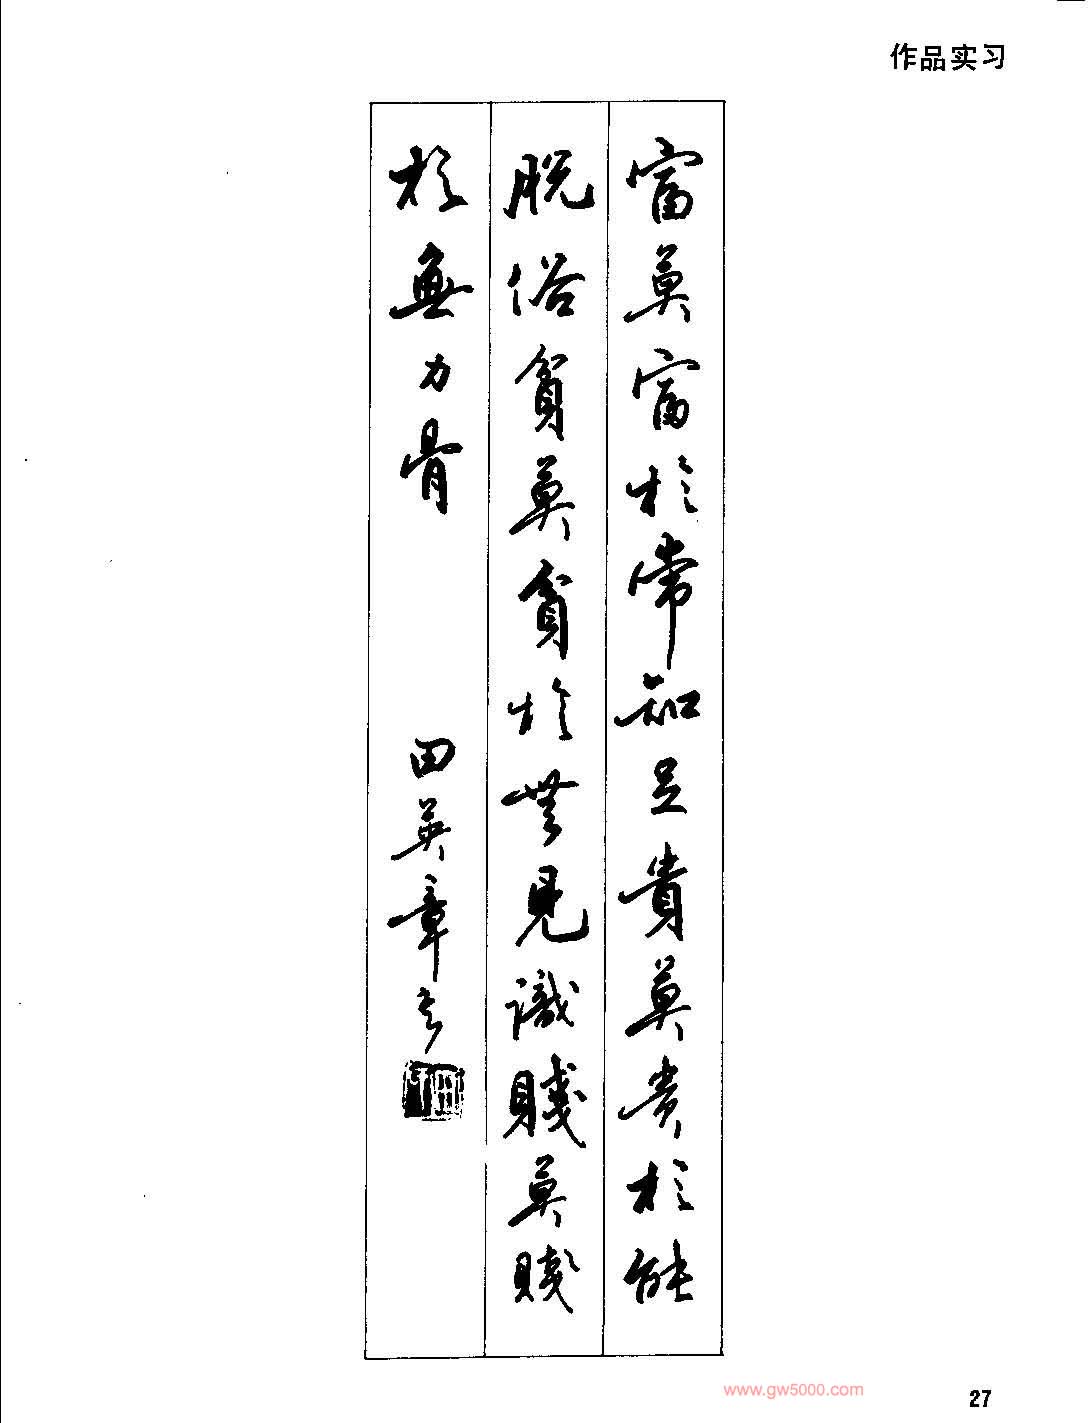 作品实习
富莫富於常知足貴莫贵於能
脱俗貧莫貧於無見識賤莫賤
於無力骨
田英章書
www.gw5000.com
27